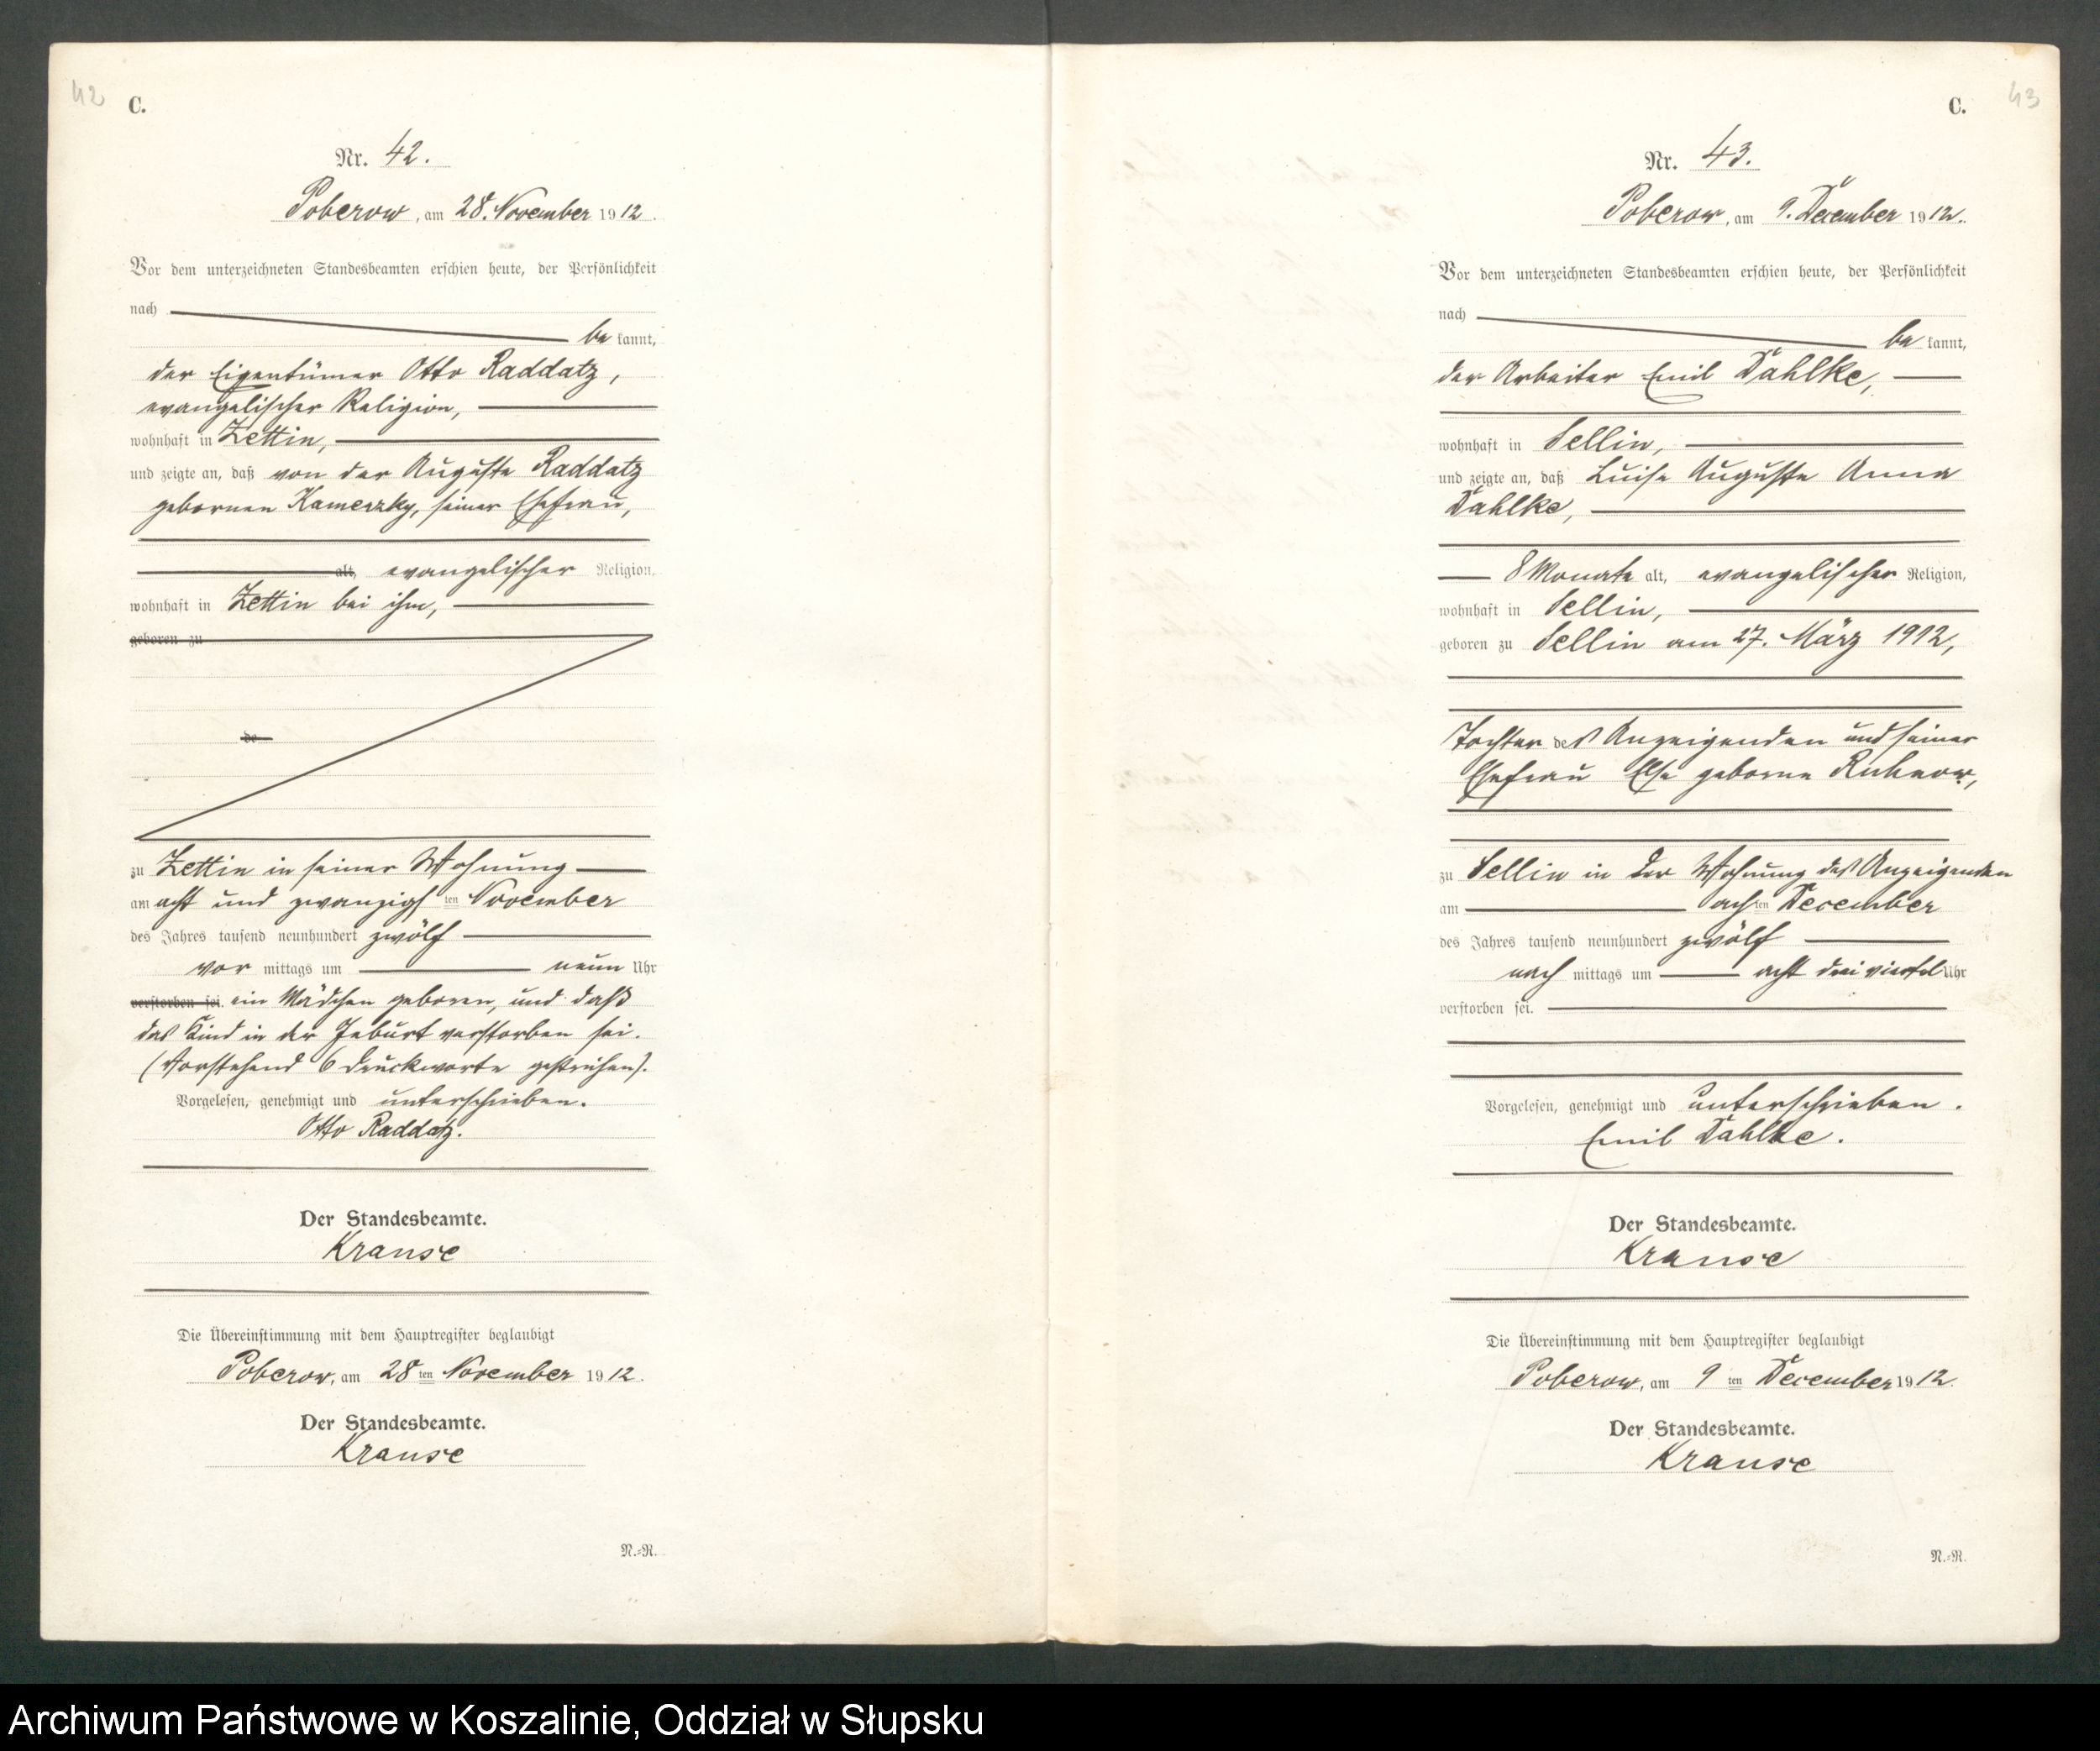 42
C.
Nr. 42.
Poberow, am 28. November 1912.
Vor dem unterzeichneten Standesbeamten erschien heute, der Persönlichkeit
nach
be kannt,
der Eigentümer Otto Raddatz,
evangelischer Religion,
wohnhaft in Zettin,
und zeigte an, daß von der Auguste Raddatz
gebornen Kameszky, seiner Ehefrau,
alt, evangelischer Religion,
wohnhaft in Zettin bei ihm,
geboren zu
de
zu Zettin in seiner Wohnung
am acht und zwanzigsten November
des Jahres tausend neunhundert zwölf
vor mittags um neun Uhr
verstorben sei. ein Mädchen geboren, und daß
das Kind in der Geburt verstorben sei.
(Vorstehend 6 Druckworte gestrichen).
Vorgelesen, genehmigt und unterschrieben.
Otto Raddatz.
Der Standesbeamte.
Krause
Die Übereinstimmung mit dem Hauptregister beglaubigt
Poberow, am 28 ten November 1912.
Der Standesbeamte.
Krause
N.=R.
43
C.
Nr. 43.
Poberow, am 9. December 1912.
Vor dem unterzeichneten Standesbeamten erschien heute, der Persönlichkeit
nach
be kannt,
der Arbeiter Emil Dahlke,
wohnhaft in Sellin,
und zeigte an, daß Luise Auguste Anna
Dahlke,
8 Monate alt, evangelischer Religion,
wohnhaft in Sellin,
geboren zu Sellin am 27. März 1912,
Tochter des Anzeigenden und seiner
Ehefrau Else geborne Ruhnow,
zu Sellin in der Wohnung des Anzeigenden
am achten December
des Jahres tausend neunhundert zwölf
nach mittags um acht drei viertel Uhr
verstorben sei.
Vorgelesen, genehmigt und unterschrieben.
Emil Dahlke.
Der Standesbeamte.
Krause
Die Übereinstimmung mit dem Hauptregister beglaubigt
Poberow, am 9 ten December 1912.
Der Standesbeamte.
Krause
N.=R.
Archiwum Państwowe w Koszalinie, Oddział w Słupsku